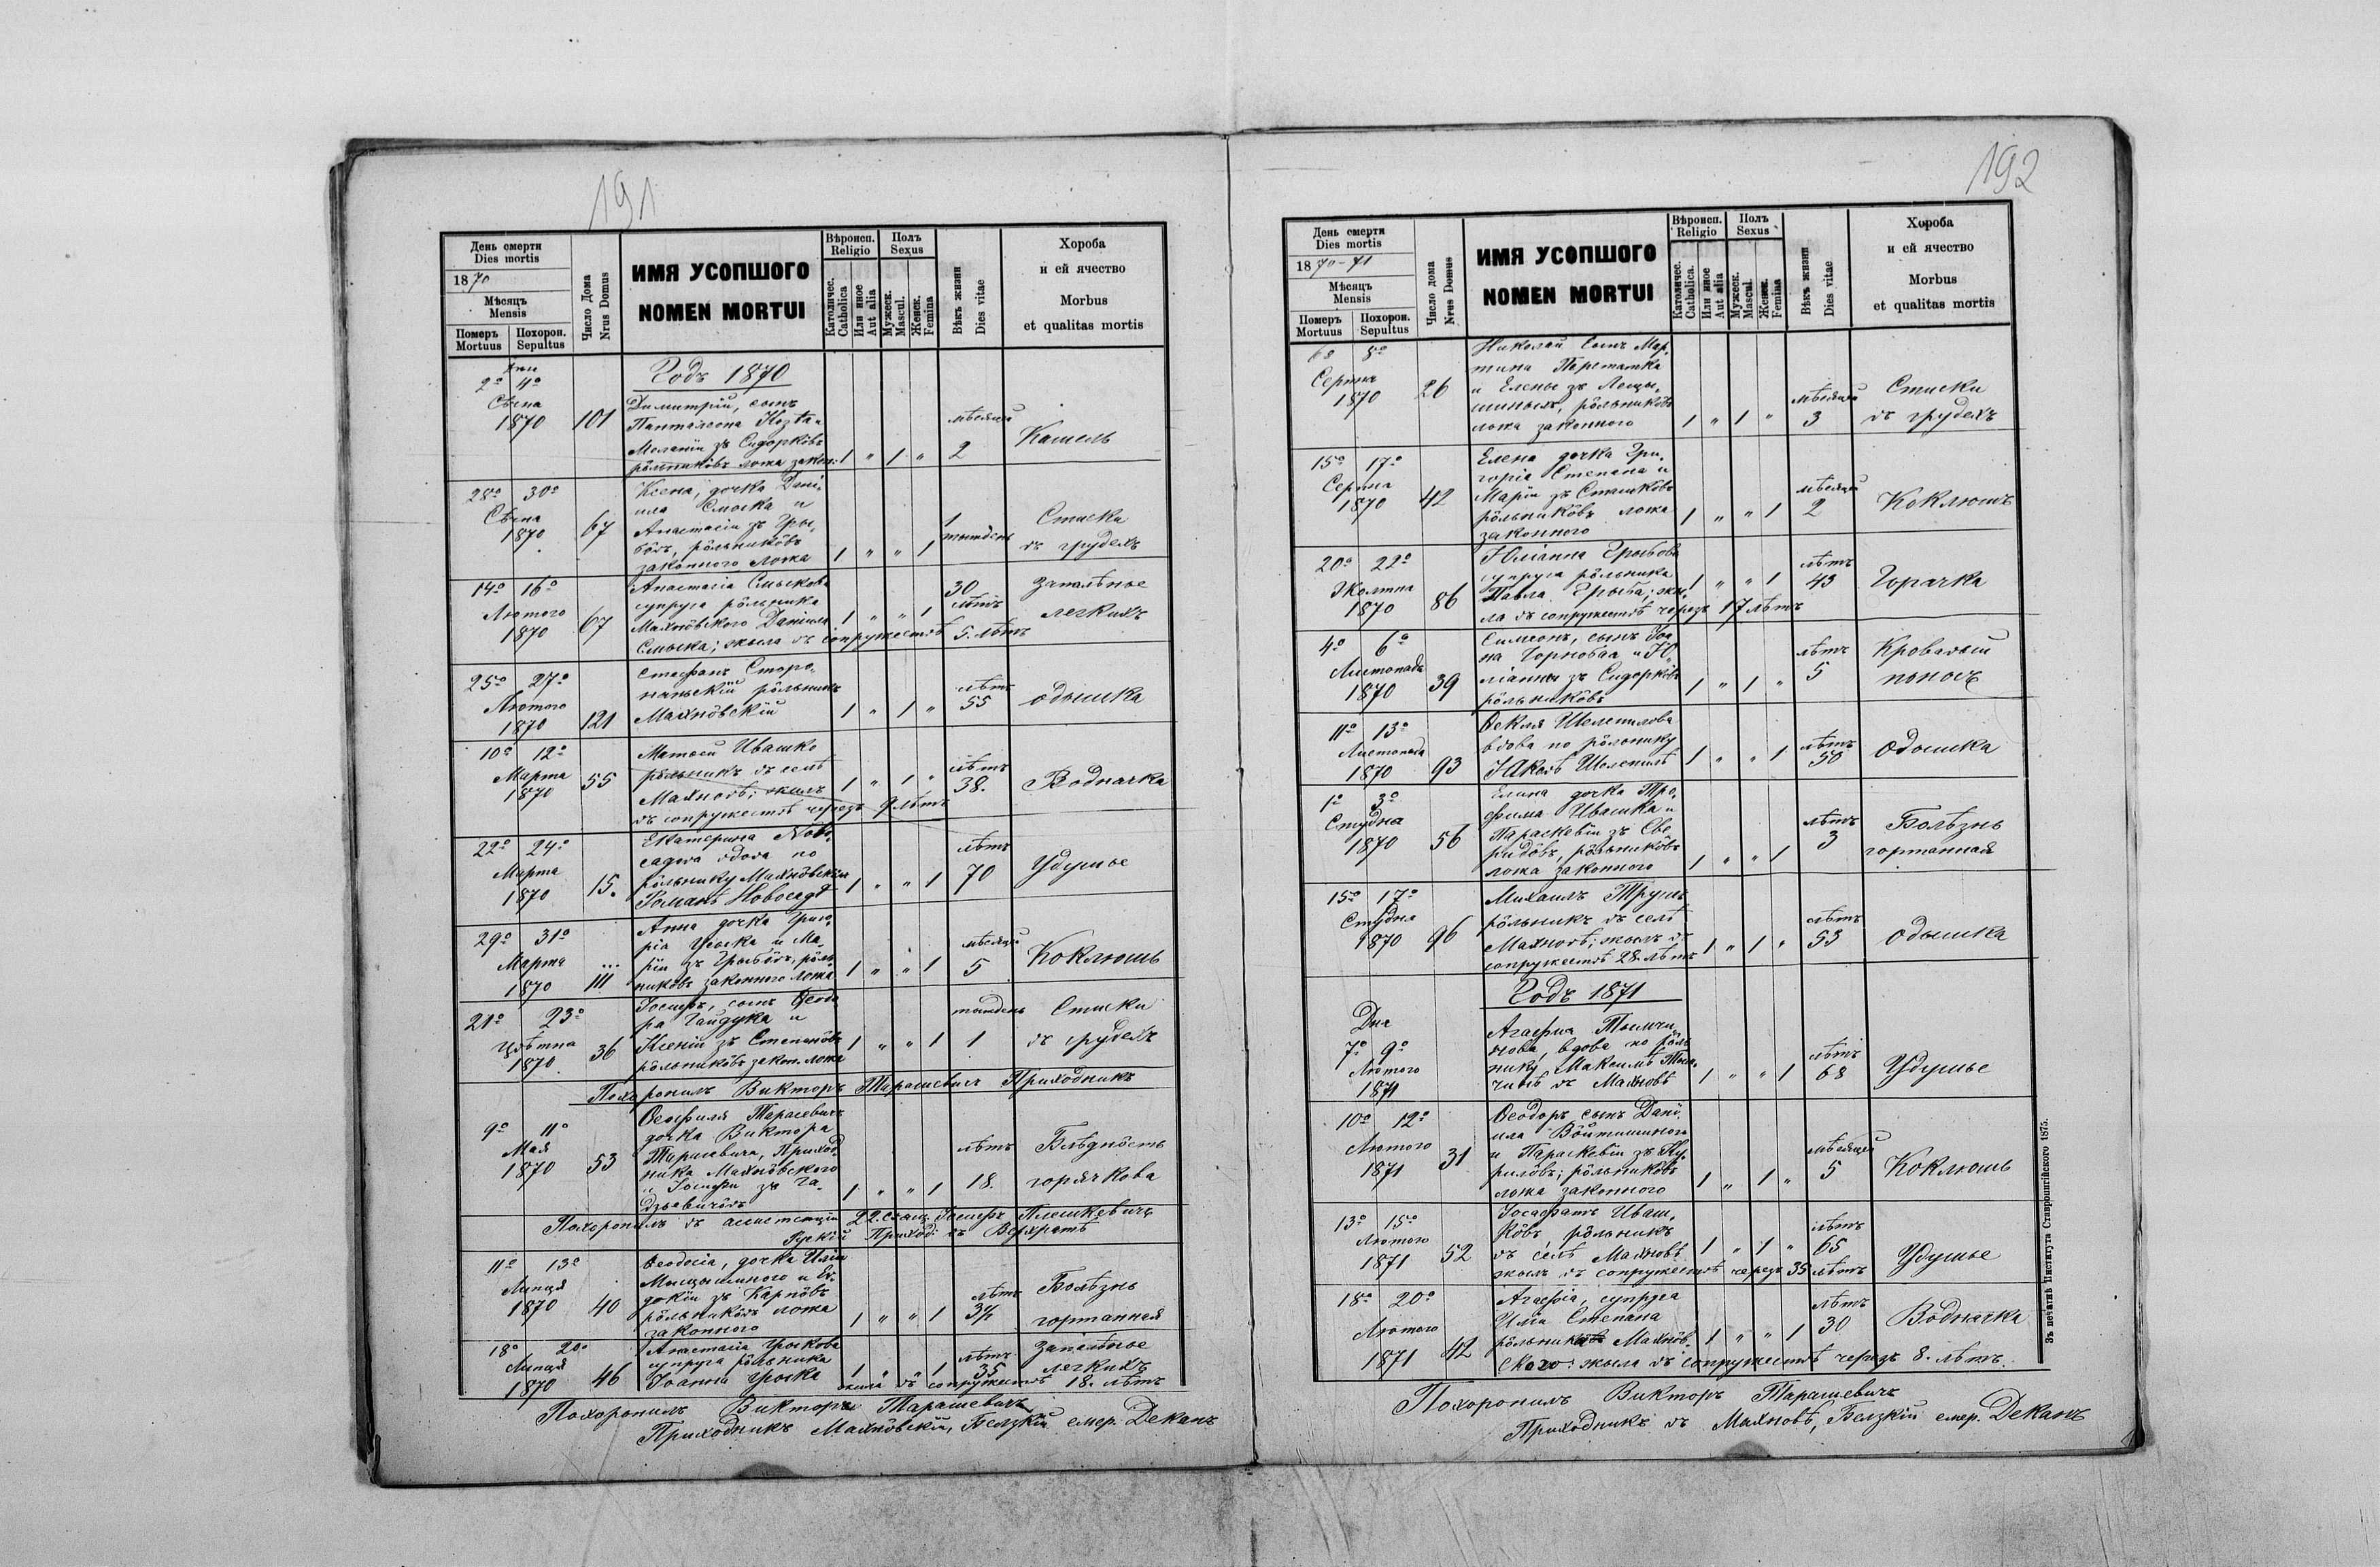 191
День смерти
Dies mortis
1870
Мѣсяцъ
Mensis
Померъ Похорон.
Mortuus Sepultus
Число Дома
Nrus Domus
ИМЯ УСОПШОГО
NOMEN MORTUI
Вѣроисп.
Religio
Католичес.
Catholica
Или иное
Aut alia
Полъ
Sexus
Мужеск.
Mascul.
Женск.
Femina
Вѣкъ жизни
Dies vitae
Хороба
и ей ячество
Morbus
et qualitas mortis
Годъ 1870
2º 4º
Сѣчна
1870 101
Димитрій, сынъ
Панталеона
Меланіи зъ Сидорковъ
рôльникôвъ ложа закон:
1 " 1 "
мѣсяцей
2
Кашель
28º 30º
Сѣчна
1870 67
Ксена, дочка Дані
ила Смыка и
Анастасіи зъ Гры
бôвъ, рôльникôвъ
законного ложа
1 " " 1
1
тыждень
Стиски
въ грудехъ
14º 16º
Лютого
1870 67
Анастасіа Смыкова
супруга рôльника
Махнôвского Даніила
Смыка; жыла въ сопружествѣ 5. лѣтъ
1 " " 1
30
лѣтъ
Запаленье
легкихъ
25º 27º
Лютого
1870 121
Стефанъ Сторо
рôльникъ
Махнôвскій
1 " 1 "
лѣтъ
55
Одышка
10º 12º
Марта
1870 55
Матѳей Ивашко
рôльникъ въ селѣ
Махновѣ; жылъ
въ сопружествѣ черезъ 9 лѣтъ
1 " 1 "
лѣтъ
38.
Воднячка
22º 24º
Марта
1870 15.
Екатерина Ново
садла вдова по
рôльнику Махнôвскимъ
Романѣ Новосадѣ
1 " " 1
лѣтъ
70
Удушье
29º 31º
Марта
1870 111
Анна дочка Григо
рія и Ма
ріи зъ Грыбôвъ, рôль
никôвъ законного ложа
1 " " 1
мѣсяцей
5
Коклюшъ
21º 23º
Цвѣтна
1870 36
Іосифъ, сынъ Ѳеодо
ра Гайдука и
Ксеніи зъ Степанôвъ
рôльникôвъ закон. ложа
1 " " 1
тыждень
1
Стиски
въ грудехъ
Похоронилъ Викторъ Тарашевичъ Приходникъ
9º 11º
Мая
1870 53
Ѳеофиля Тарасевичъ
дочка Виктора
Тарасевича, Приход
ника Махнôвского
и Іосифы зъ Га
дзѣвичôвъ
1 " " 1
лѣтъ
18.
Блѣдность
горячкова
Похоронилъ въ ассистенціи Іосифъ Плешкевичъ
Рускій Приход: въ Верхратѣ
11º 13º
Липця
1870 40
Ѳеодосіа, дочка Иліи
и Ев
докіи зъ Карпôвъ
рôльникôвъ ложа
законного
1 " " 1
лѣтъ
Болѣзнь
гортанная
18º 20º
Липця
1870 46
Анастасіа
супруга рôльника
Іоанна
1 " " 1
лѣтъ
35
жила въ сопружествѣ 18. лѣтъ
Запаленье
легкихъ
Похоронилъ Викторъ Тарашевичъ
Приходникъ Махнôвскій, Белзкій емер. Деканъ
192
День смерти
Dies mortis
1870-71
Мѣсяцъ
Mensis
Померъ Похорон.
Mortuus Sepultus
Число дома
Nrus Domus
ИМЯ УСОПШОГО
NOMEN MORTUI
Вѣроисп.
Religio
Католичес.
Catholica.
Или иное
Aut alia
Полъ
Sexus
Мужеск.
Mascul.
Женск.
Femina
Вѣкъ жизни
Dies vitae
Хороба
и ей ячество
Morbus
et qualitas mortis
6º 8º
Серпня
1870 26
Николай сынъ Мар
тина
и Елены зъ
рôльникôвъ
ложа законного
1 " 1 "
мѣсяцей
3
Стиски
въ грудехъ
15º 17º
Серпня
1870 42
Елена дочка Гри
горіа Степана и
Маріи зъ Сташкôвъ
рôльникôвъ ложа
законного
1 " " 1
мѣсяцей
2
Коклюшъ
20º 22º
Жолтня
1870 86
Юліанна Грыбова
супруга рôльника
Павла Грыба; жи
ла въ сопружествѣ черезъ 17 лѣтъ
1 " " 1
лѣтъ
43
Горячка
4º 6º
Листопада
1870 39
Симеонъ, сынъ Іоа
на и Ю
ліанны зъ Сидоркôвъ
рôльникôвъ
1 " 1 "
лѣтъ
5
Кровавый
поносъ
11º 13º
Листопада
1870 93
Ѳекля Шелепилова
вдова по рôльнику
Яковѣ Шелепилѣ
1 " " 1
лѣтъ
50
Одышка
1º 3º
Студня
1870 56
Елина дочка Тро
фима Ивашка и
Параскевіи зъ Све
ридôвъ, рôльникôвъ
ложа законного
1 " " 1
лѣтъ
3
Болѣзнь
гортанная
15º 17º
Студня
1870 96
Михаилъ Трушъ
рôльникъ въ селѣ
Махновѣ; жылъ въ
сопружествѣ 28. лѣтъ
1 " 1 "
лѣтъ
53
Одышка
Годъ 1871
Дня
7º 9º
Лютого
1871
Агафіа
вдова по рôль
нику Максимѣ
въ Махновѣ
1 " " 1
лѣтъ
68
Удушье
10º 12º
Лютого
1871 31
Ѳеодоръ сынъ Дані
ила Вôйтишиного
и Параскевіи зъ Ку
рилôвъ; рôльникôвъ
ложа законного
1 " 1 "
мѣсяцей
5
Коклюшъ
13º 15º
Лютого
1871 52
Іосафатъ Иваш
кôвъ рôльникъ
въ селѣ Махновѣ
жылъ въ сопружествѣ черезъ 35 лѣтъ
1 " 1 "
лѣтъ
65
Удушье
18º 20º
Лютого
1871 42
Агафіа, супруга
Иліа Степана
рôльника Махнôв
ского: жыла въ сопружествѣ черезъ 8. лѣтъ.
1 " " 1
лѣтъ
30
Воднячка
Похоронилъ Викторъ Тарашевичъ
Приходникъ въ Махновѣ, Белзкій емер. Деканъ
Зъ печатнѣ Института Ставропигійского 1875.